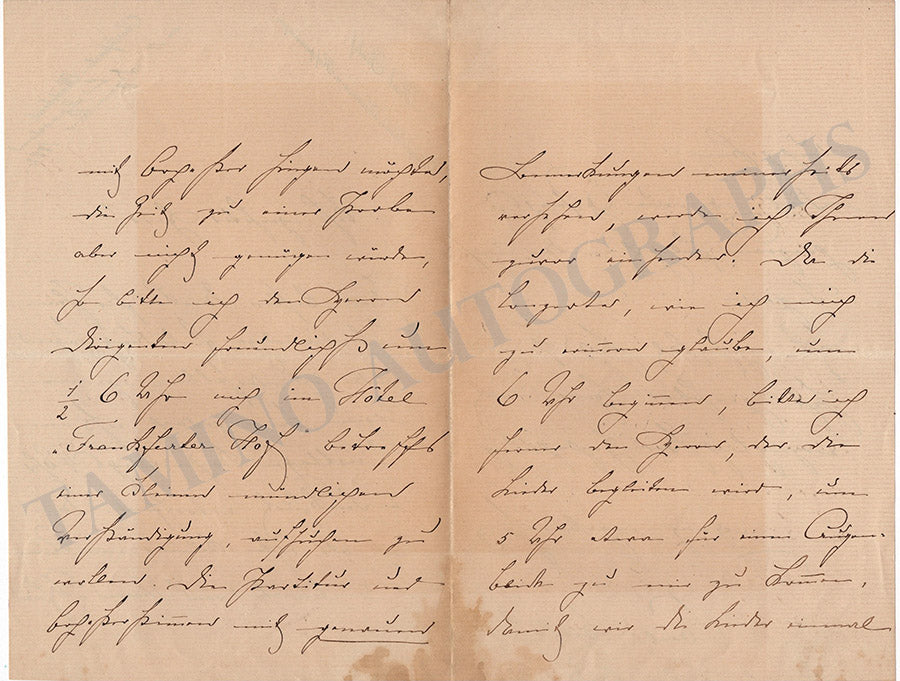 mit Orchester singen möchte,
die Zeit zu einer Probe
aber nicht genügen würde,
so bitte ich den Herrn
Dirigenten freundlichst um
½ 6 Uhr mich im Hôtel
„Frankfurter Hof" betreffs
einer kleinen mündlichen
Verständigung, aufsuchen zu
wollen. Die Partitur und
Orchesterstimmen mit genauen
Bemerkungen meinerseits
versehen, werde ich Ihnen
zuvor einsenden. Da die
Concerte, wie ich mich
zu erinnern glaube, um
6 Uhr beginnen, bitte ich
ferner den Herrn, der die
Lieder begleiten wird, um
5 Uhr etwa für einen Augen-
blick zu mir zu kommen,
damit wir die Lieder einmal
TAMINO AUTOGRAPHS